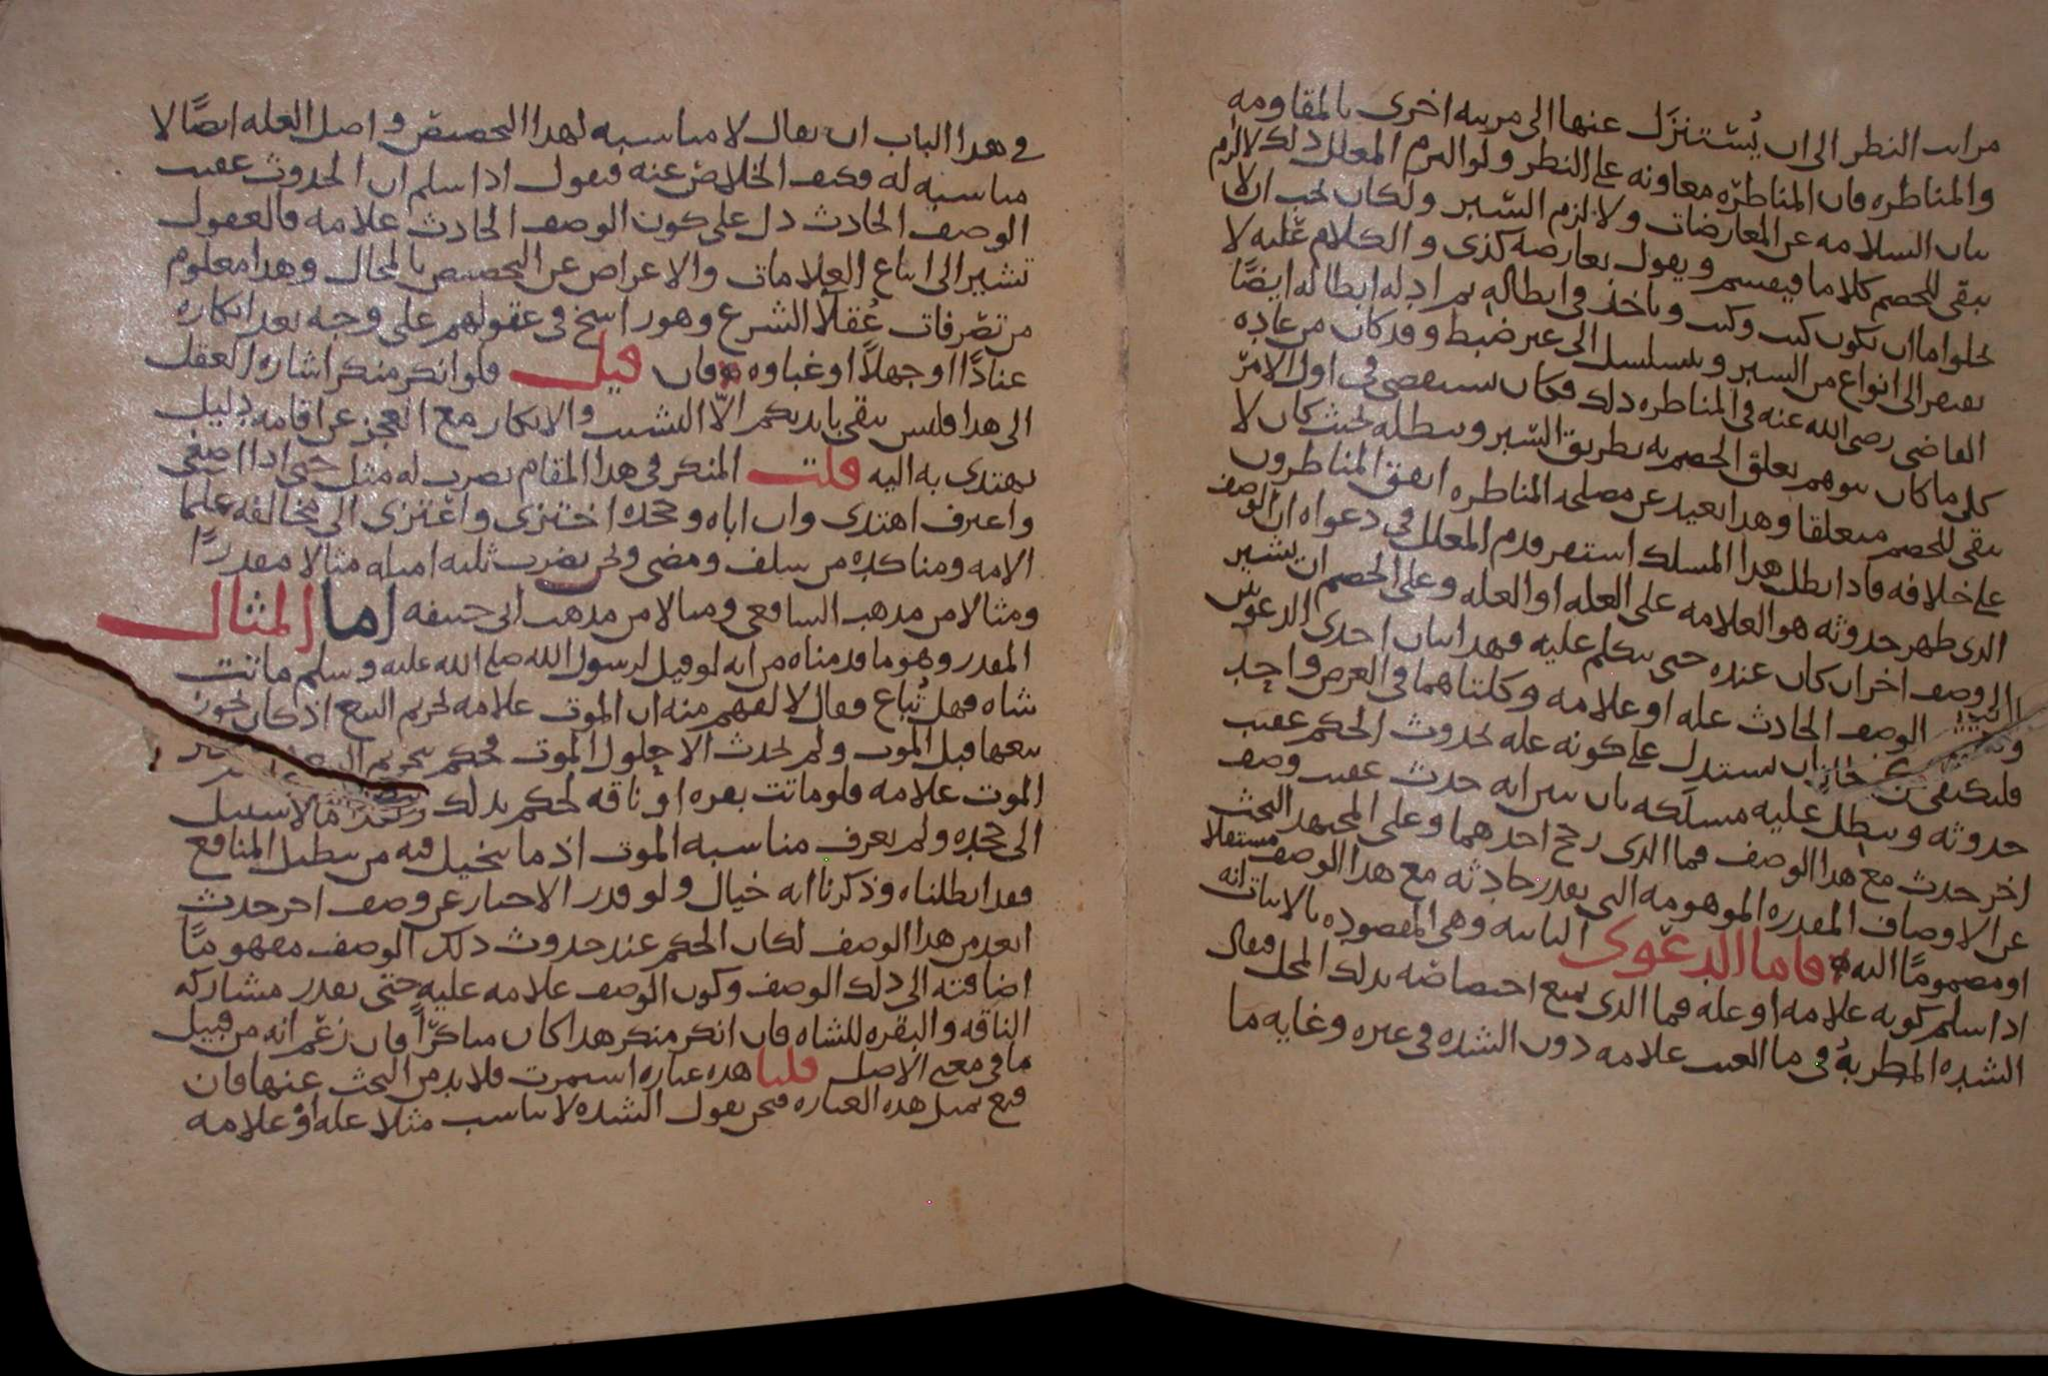 مراتب النظر الى ان يُستنزل عنها الى مرتبه اخرى بالمقاومه
والمناظره فان المناظره معاونه على النظر ولو التزم المعلل ذلك لالزم
بيان السلامه عن المعارضات ولا يلزم السبر ولكان يجب ان لا
يبقى للخصم كلاما فيقسم ويقول يعارضه كذى والكلام عليه لا
يخلوا ما ان يكون كيت وكيت وياخذ في ابطاله ثم ادله ابطاله ايضًا
يفتقر الى انواع من السبر ويتسلسل الى غير ضبط وقد كان من عاده
القاضى رضى الله عنه في المناظره ذلك فكان يستقصى في اول الامر
كل ما كان يتوهم تعلق الخصم به بطريق السبر ويبطله بحيث كان لا
يبقى للخصم متعلقا وهذا بعيد عن مصلحه المناظره اتفق المناظرون
على خلافه فاذا بطل هذا المسلك استقر قدم المعلل في دعواه ان الوصف
الذى ظهر حدوثه هو العلامه على العله او العله وعلى الخصم ان يشير
الى وصف اخر ان كان عنده حتى يتكلم عليه فهذا اثبات احدى الدعوتين
الوصف الحادث عله او علامه وكلتاهما في الغرض واحد
فليكتفى ان يستدل على كونه عله بحدوث الحكم عقيب
حدوثه ويبطل عليه مسلكه بان يبين انه حدث عقيب وصف
اخر حدث مع هذا الوصف فما الذى رجح احدهما وعلى المجتهد البحث
عن الاوصاف المقدره الموهومه التى يقدر حادثه مع هذا الوصف مستقلا
او مضمومًا اليه فاما الدعوى الثانيه وهى المقصوده بالاثبات انه
اذا سلم كونه علامه او عله فما الذى يمنع اختصاصه بذلك المحل فيقال
الشده المطربهُ في ما العنب علامه دون الشده في غيره وغايه ما
في هذا الباب ان يقال لا مناسبه لهذا التخصيص واصل العله ايضًا لا
مناسبه له فكيف الخلاص عنه فيقول اذا سلم ان الحدوث عقيب
الوصف الحادث دل على كون الوصف الحادث علامه فالعقول
تشير الى اتباع العلامات والاعراض عن التخصيص بالمحال وهذا معلوم
من تصرفات عُقلاَ الشرع وهو راسخ في عقولهم على وجه يعد انكاره
عنادًا او جهلاً او غباوه فان قيل فلو انكر منكر اشاره العقل
الى هذا فليس يبقى بايديكم الاّ التشبث والانكار مع العجز عن اقامه دليل
يهتدى به اليه قلت المنكر في هذا المقام يضرب له مثل حتى اذا اصغى
واعترف اهتدى وان اباه وجحده اختزى واعتزى الى مخالفه علما
الامه ومناكده من سلف ومضى ونحن نضرب ثلثه امثله مثالا مقدرًا
ومثالا من مذهب الشافعى ومثالا من مذهب ابى حنيفه اما المثال
المقدر وهو ما قدمناه من انه لو قيل لرسول الله صلى الله عليه وسلم ماتت
شاه فهل تُباع فقال لا لفهم منه ان الموت علامه لتحريم البيع اذ كان يجوز
بيعها قبل الموت ولم يحدث الا حلول الموت فحكم بتحريم
الموت علامه فلو ماتت بقره او ناقه لحكم بذلك وهذا مما لا سبيل
الى جحده ولم يعرف مناسبه الموت اذ ما يتخيل فيه من تبطيل المنافع
فقد ابطلناه وذكرنا انه خيال ولو قدر الاخبار عن وصف اخر حدث
ابعد من هذا الوصف لكان الحكم عند حدوث ذلك الوصف مفهومًا
اضافته الى ذلك الوصف وكون الوصف علامه عليه حتى يقدر مشاركه
الناقه والبقره للشاه فان انكر منكر هذا كان مناكرًا فان زعم انه من قبيل
ما في معنى الاصل قلنا هذه عباره استمرت فلا بد من البحث عنها فان
قنع بمثل هذه العباره فنحن نقول الشده لا تناسب مثلا عله او علامه